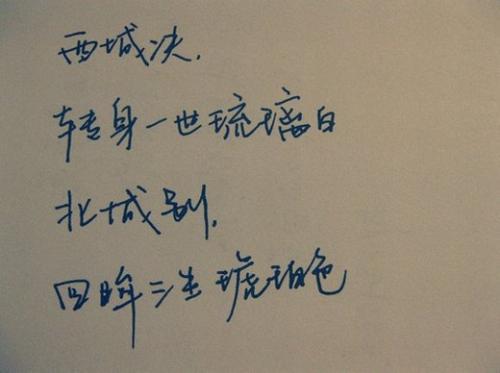 西城决.
转身一世琉璃白
北城别.
回眸三生琥珀色